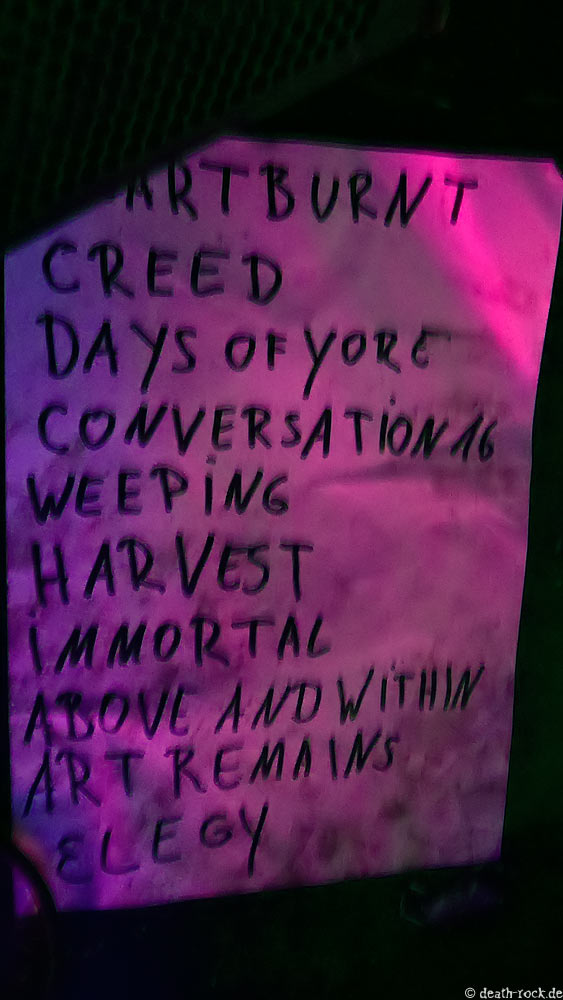 ARTBURNT
CREED
DAYS OF YORE
CONVERSATION 16
WEEPING
HARVEST
IMMORTAL
ABOVE AND WITHIN
ART REMAINS
ELEGY
© death-rock.de